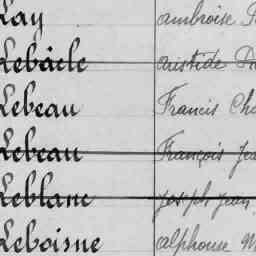 Lay ambroise
Lebâcle aristide
Lebeau Francis
Lebeau François
Leblanc Joseph Jean
Leboisne alphonse